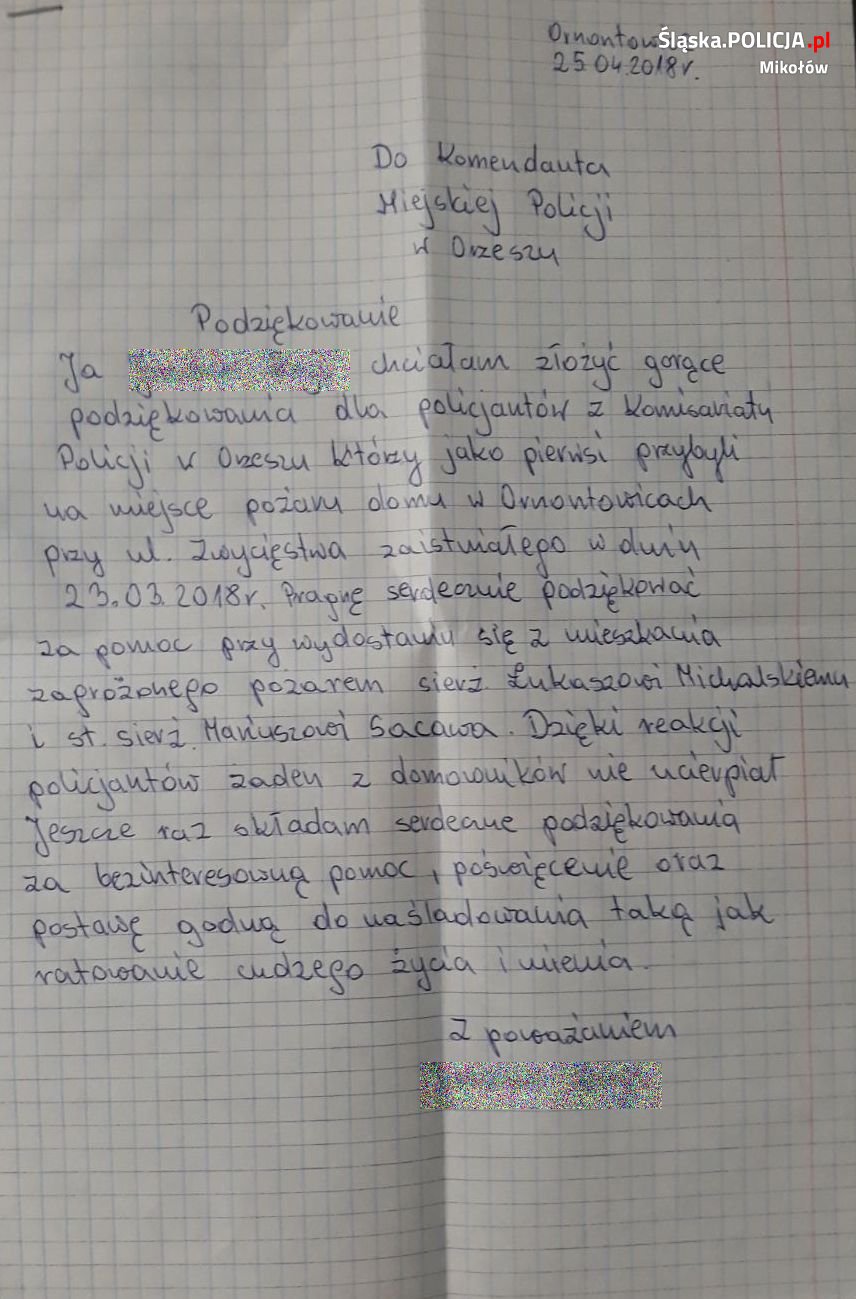 Ornontowice
Śląska.POLICJA.pl
25.04.2018r.
Mikołów
Do Komendanta
Miejskiej Policji
w Orzeszu
Podziękowanie
Ja chciałam złożyć gorące
podziękowania dla policjantów z Komisariatu
Policji w Orzeszu którzy jako pierwsi przybyli
na miejsce pożaru domu w Ornontowicach
przy ul. Zwycięstwa zaistniałego w dniu
23.03.2018r. Pragnę serdecznie podziękować
za pomoc przy wydostaniu się z mieszkania
zagrożonego pożarem sierż. Łukaszowi Michalskiemu
i st. sierż. Mariuszowi Sacawa. Dzięki reakcji
policjantów żaden z domowników nie ucierpiał
Jeszcze raz składam serdeczne podziękowania
za bezinteresowną pomoc, poświęcenie oraz
postawę godną do naśladowania taką jak
ratowanie cudzego życia i mienia.
Z poważaniem